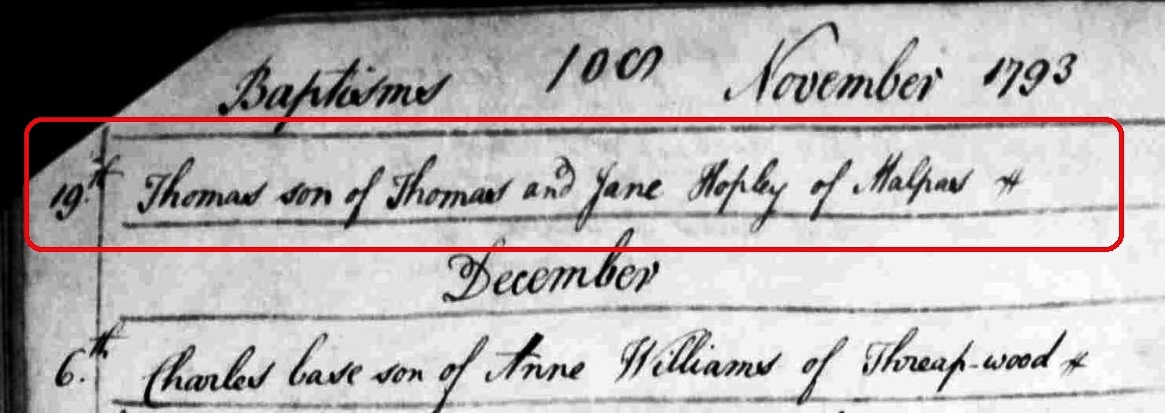 Baptisms 109 November 1793
19.th Thomas son of Thomas and Jane Hopley of Malpas #
December
6.th Charles base son of Anne Williams of Threap-wood #